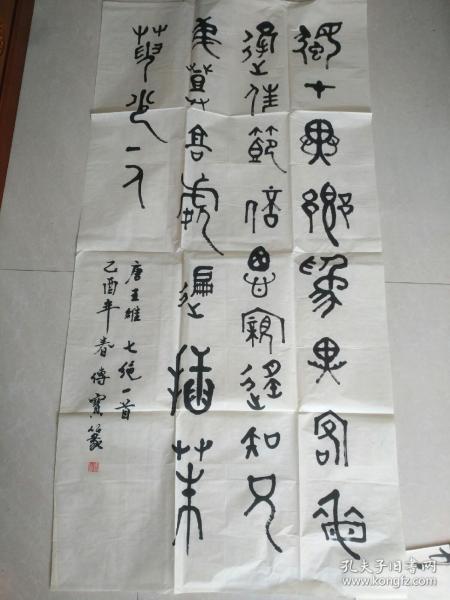 獨在異鄉為異客每
逢佳節倍思親遙知兄
弟登高處遍插茱
萸少一人
唐王維七絕一首
乙酉年春傅寶篆
孔夫子旧书网
www.kongfz.com